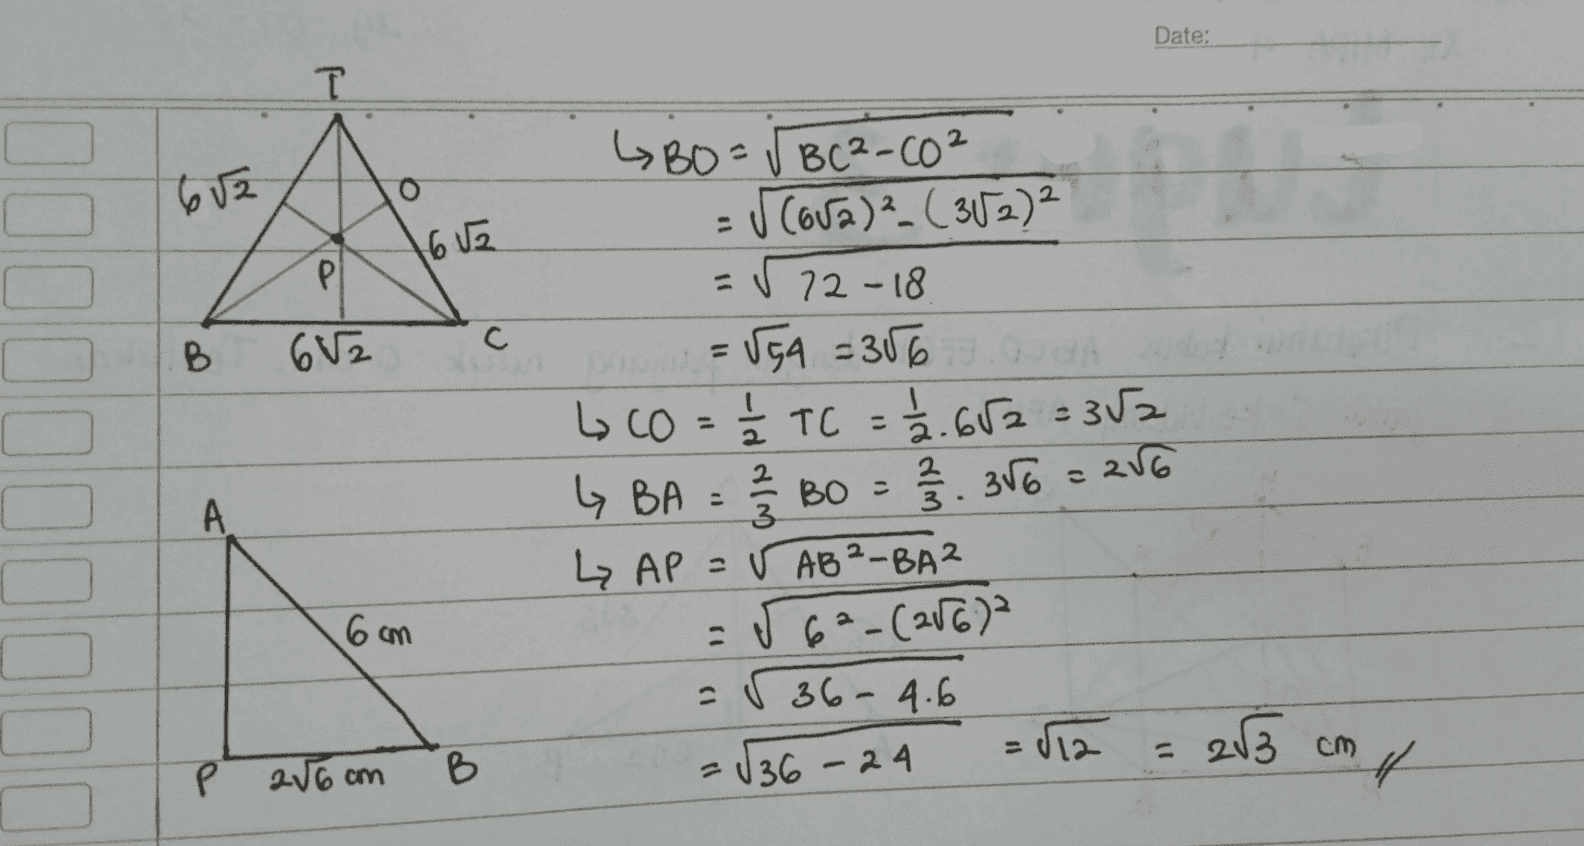 Date:
T
6√2
O
6√2
P
B
6√2
C
↳ BO = √BC²-CO²
= √(6√2)²-(3√2)²
= √72-18
= √54 = 3√6
↳ CO = 1/2 TC = 1/2 . 6√2 = 3√2
↳ BA = 2/3 BO = 2/3 . 3√6 = 2√6
↳ AP = √AB²-BA²
= √6²-(2√6)²
= √36-4.6
= √36-24 = √12 = 2√3 cm //
A
6 cm
P
2√6 cm
B